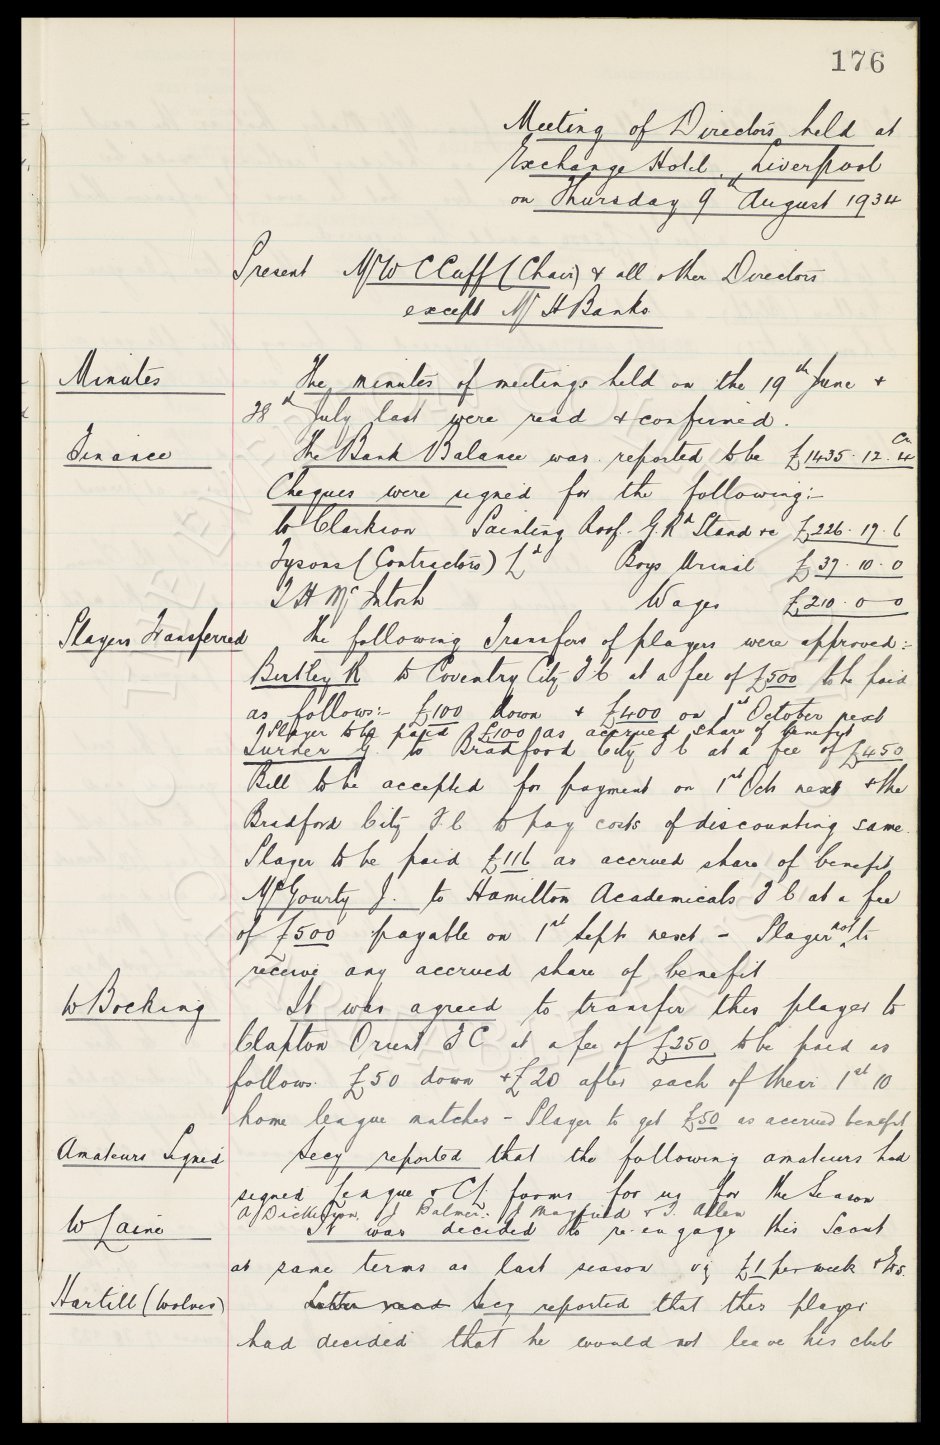 176
Meeting of Directors held at
Exchange Hotel, Liverpool
on Thursday 9th August 1934
Present Mr W C Cuff (Chair) & all other Directors
except Mr H Banks
Minutes The minutes of meetings held on the 19th June &
28th July last were read & confirmed.
Finance The Bank Balance was reported to be £1435.12.4 Cr
Cheques were signed for the following:-
W Clarkson Painting Roof. G. Rd Stand &c £226.19.6
Tysons (Contractors) Ld Boys Urinal £37.10.0
T H McIntosh Wages £210.0.0
Players Transferred The following Transfers of players were approved:-
Birtley R to Coventry City F C at a fee of £500 to be paid
as follows:- £100 down & £400 on 1st October next
Player to be paid £100 as accrued share of benefit
Turner G. to Bradford City F C at a fee of £450
Bill to be accepted for payment on 1st Oct next & the
Bradford City F.C to pay costs of discounting same.
Player to be paid £116 as accrued share of benefit
McGourty J. to Hamilton Academicals F C at a fee
of £500 payable on 1st Sept next - Player not to
receive any accrued share of benefit
W Bocking It was agreed to transfer this player to
Clapton Orient F C at a fee of £250 to be paid as
follows. £50 down & £20 after each of their 1st 10
home league matches - Player to get £50 as accrued benefit
Amateurs Signed Secy reported that the following amateurs had
signed League & C.L. forms for us for the Season
A Dickinson, J Balmer: J Mayfield & T. Allen
W Laine It was decided to re-engage this Scout
at same terms as last season viz £1 per week & Exs.
Hartill (Wolves) Letter read Secy reported that this player
had decided that he would not leave his club